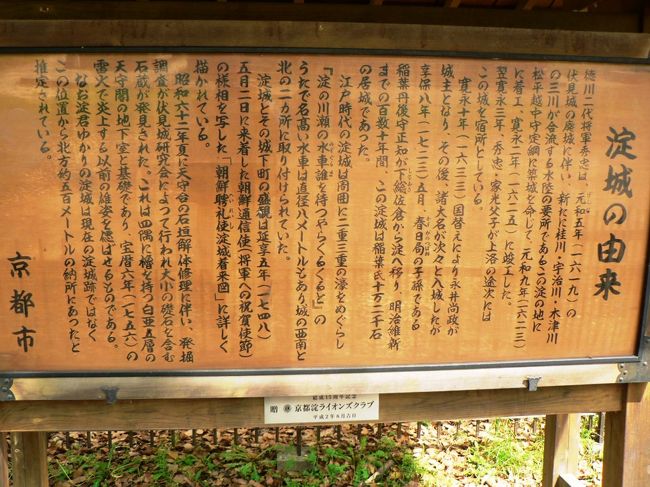 淀城の由来
徳川二代将軍秀忠は、元和五年(一六一九)の
伏見城の廃城に伴い、新たに桂川・宇治川・木津川
の三川が合流する水陸の要所であるこの淀の地に
松平越中守定綱に築城を命じて、元和九年(一六二三)
に着工、寛永二年(一六二五)に竣工した。
翌寛永三年、秀忠・家光父子が上洛の途次には
この城を宿所としている。
寛永十年(一六三三)国替えにより永井尚政が
城主となり、その後、諸大名が次々と入城したが
享保八年(一七二三)五月、春日局の子孫である
稲葉丹後守正知が下総佐倉から淀へ移り、明治維新
までの百数十年間、この淀城は稲葉氏十万二千石
の居城であった。
江戸時代の淀城は周囲に二重三重の濠をめぐらし
「淀の川瀬の水車誰を待つやらくるくると」の
うたで名高い水車は直径八メートルもあり城の西南と
北の二カ所に取り付けられていた。
淀城とその城下町の盛観は延享五年(一七四八)
五月二日に来着した朝鮮通信使(将軍への祝賀使節)
の様相を写した「朝鮮聘礼使淀城着来図」に詳しく
描かれている。
昭和六十二年夏に天守台の石垣解体修理に伴い、発掘
調査が伏見城研究会によって行われ大小の礎石を含む
石蔵が発見された。これは四隅に櫓を持つ白亜五層の
天守閣の地下室と基礎であり、宝暦六年(一七五六)の
雷火で炎上する以前の雄姿を偲ばせるものである。
なお淀君ゆかりの淀城は現在の淀城跡ではなく
この位置から北方約五百メートルの納所にあったと
推定されている。
京都市
結成15周年記念
贈 京都淀ライオンズクラブ
平成2年8月吉日